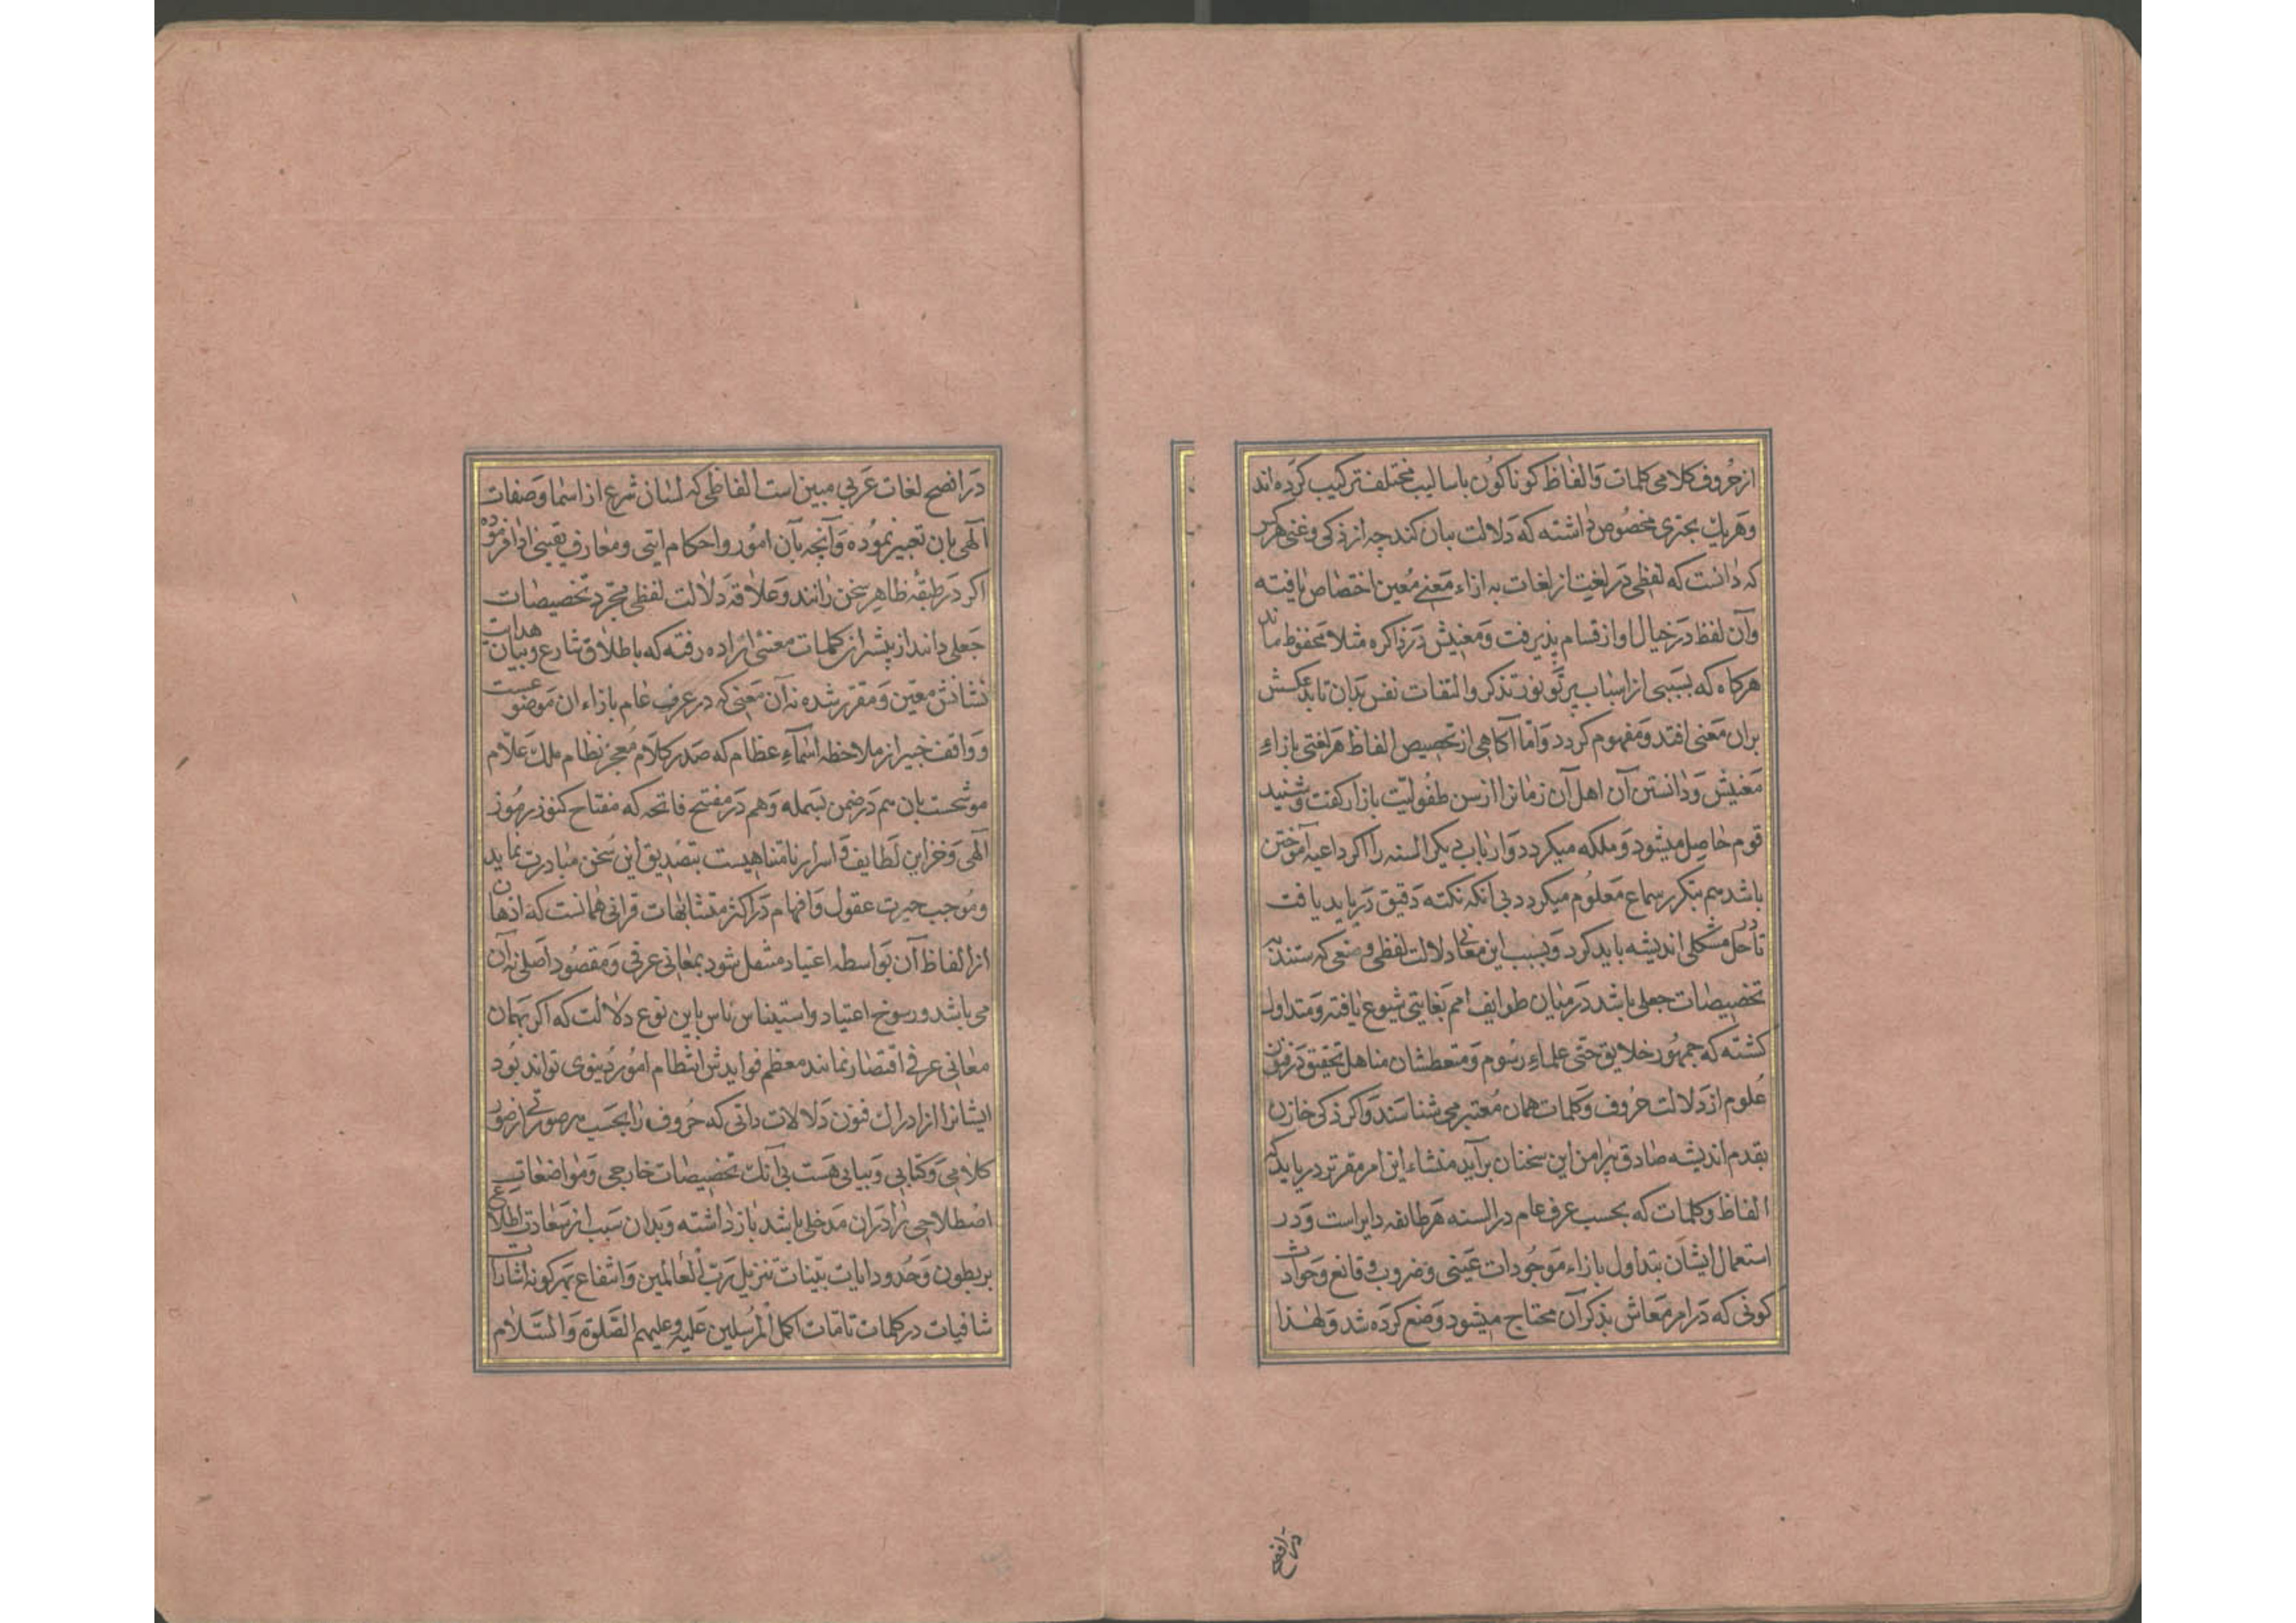 از حروف کلامی کلمات و الفاظ کوناکون باسالیب مختلفه ترکیب کرده اند
وهریک بچیزی مخصوص داشته که دلالت بران کند چه از ذکی و غنی هرکس
که دانست که لفظی در لغتی از لغات به ازاء معنی معین اختصاص یافته
وآن لفظ در خیال او ارتسام پذیرفت و معنیش در ذاکره مثلا محفوظ ماند
هرکاه که بسببی از اسباب پرتو نور تذکر والتفات نفس بدان تابد عکسش
بران معنی افتد و مفهوم کردد واما آکاهی از تخصیص الفاظ هر لغتی بازاءِ
معنیش و دانستن آن اهل آن زمانرا از سن طفولیت باز از کفت و شنید
قوم حاصل میشود و ملکه میکردد و ارباب دیکر السنه را اکر داعیه آموختن
باشد هم بتکرر سماع معلوم میکردد بی آنکه نکته دقیق درباید یافت
تا در حل مشکلی اندیشه باید کرد و بسبب این معانی دلالت لفظی وضعی که مستندبه
تخصیصات جعلی باشد در میان طوایف امم بغایتی شیوع یافته و متداول
کشته که جمهور خلایق حتی علماءِ رسوم و متعطشان مناهل تحقیق در فنون
علوم از دلالت حروف و کلمات همان معتبر می شناسند و اکر ذکی خازن
بقدم اندیشه صادق پیرامن این سخنان برآید منشاء این امر مقرتر دریابد که
الفاظ و کلمات که بحسب عرف عام در السنه هر طائفه دایر است و در
استعمال ایشان بتداول بازاء موجودات عینی و ضروب وقائع وحوادث
کونی که در امر معاش بذکر آن محتاج میشود وضع کرده شد ولهذا
در افصح
در افصح لغات عربی مبین است الفاظی که لسان شرع از اسما و صفات
آلهی بان تعبیر نموده و آنچه بآن امور و احکام ایتی و معارف یقینی ادا فرموده
اکر در طبقه ظاهر سخن رانند و علاقه دلالت لفظی مجرد تخصیصات
جعلی دانند از بیشتر از کلمات معنئی اراده رفته که باطلاق شارع و بیان هدایت
نشانش معین و مقرر شده نه آن معنی که در عرف عام بازاء ان موضوعست
و واقف خبیر از ملاحظه اسماءِ عظام که صدر کلام معجز نظام ملک علام
موشحست بان هم در ضمن بسمله وهم در مفتح فاتحه که مفتاح کنوز رموز
آلهی و خزاین لطایف و اسرار نامتناهیست بتصدیق این سخن مبادرت نماید
و موجب حیرت عقول و افهام در اکثر متشابهات قرانی همانست که اذهان
از الفاظ آن بواسطه اعتیاد مشتغل شود بمعانی عرفی و مقصود اصلی نه آن
می باشد و رسوخ اعتیاد و استیناس ناس باین نوع دلالت که اکر بهمان
معانی عرفی اقتصار نمانند معظم فوایدش انتظام امور دنیوی تواند بود
ایشانرا از ادراک فنون دلالات ذاتی که حروف را بحسب هر صورتی از صور
کلامی و کتابی و بیانی هست بی آنک تخصیصات خارجی و مواضعات
اصطلاحی را دران مدخلی باشد باز داشته و بدان سبب از سعادت اطلاع
بر بطون و حدود ایات بینات تنزیل رب العالمین و انتفاع بهرکونه اشارات
شافیات در کلمات تامات اکمل المرسلین علیه وعلیهم الصلوة والسلام